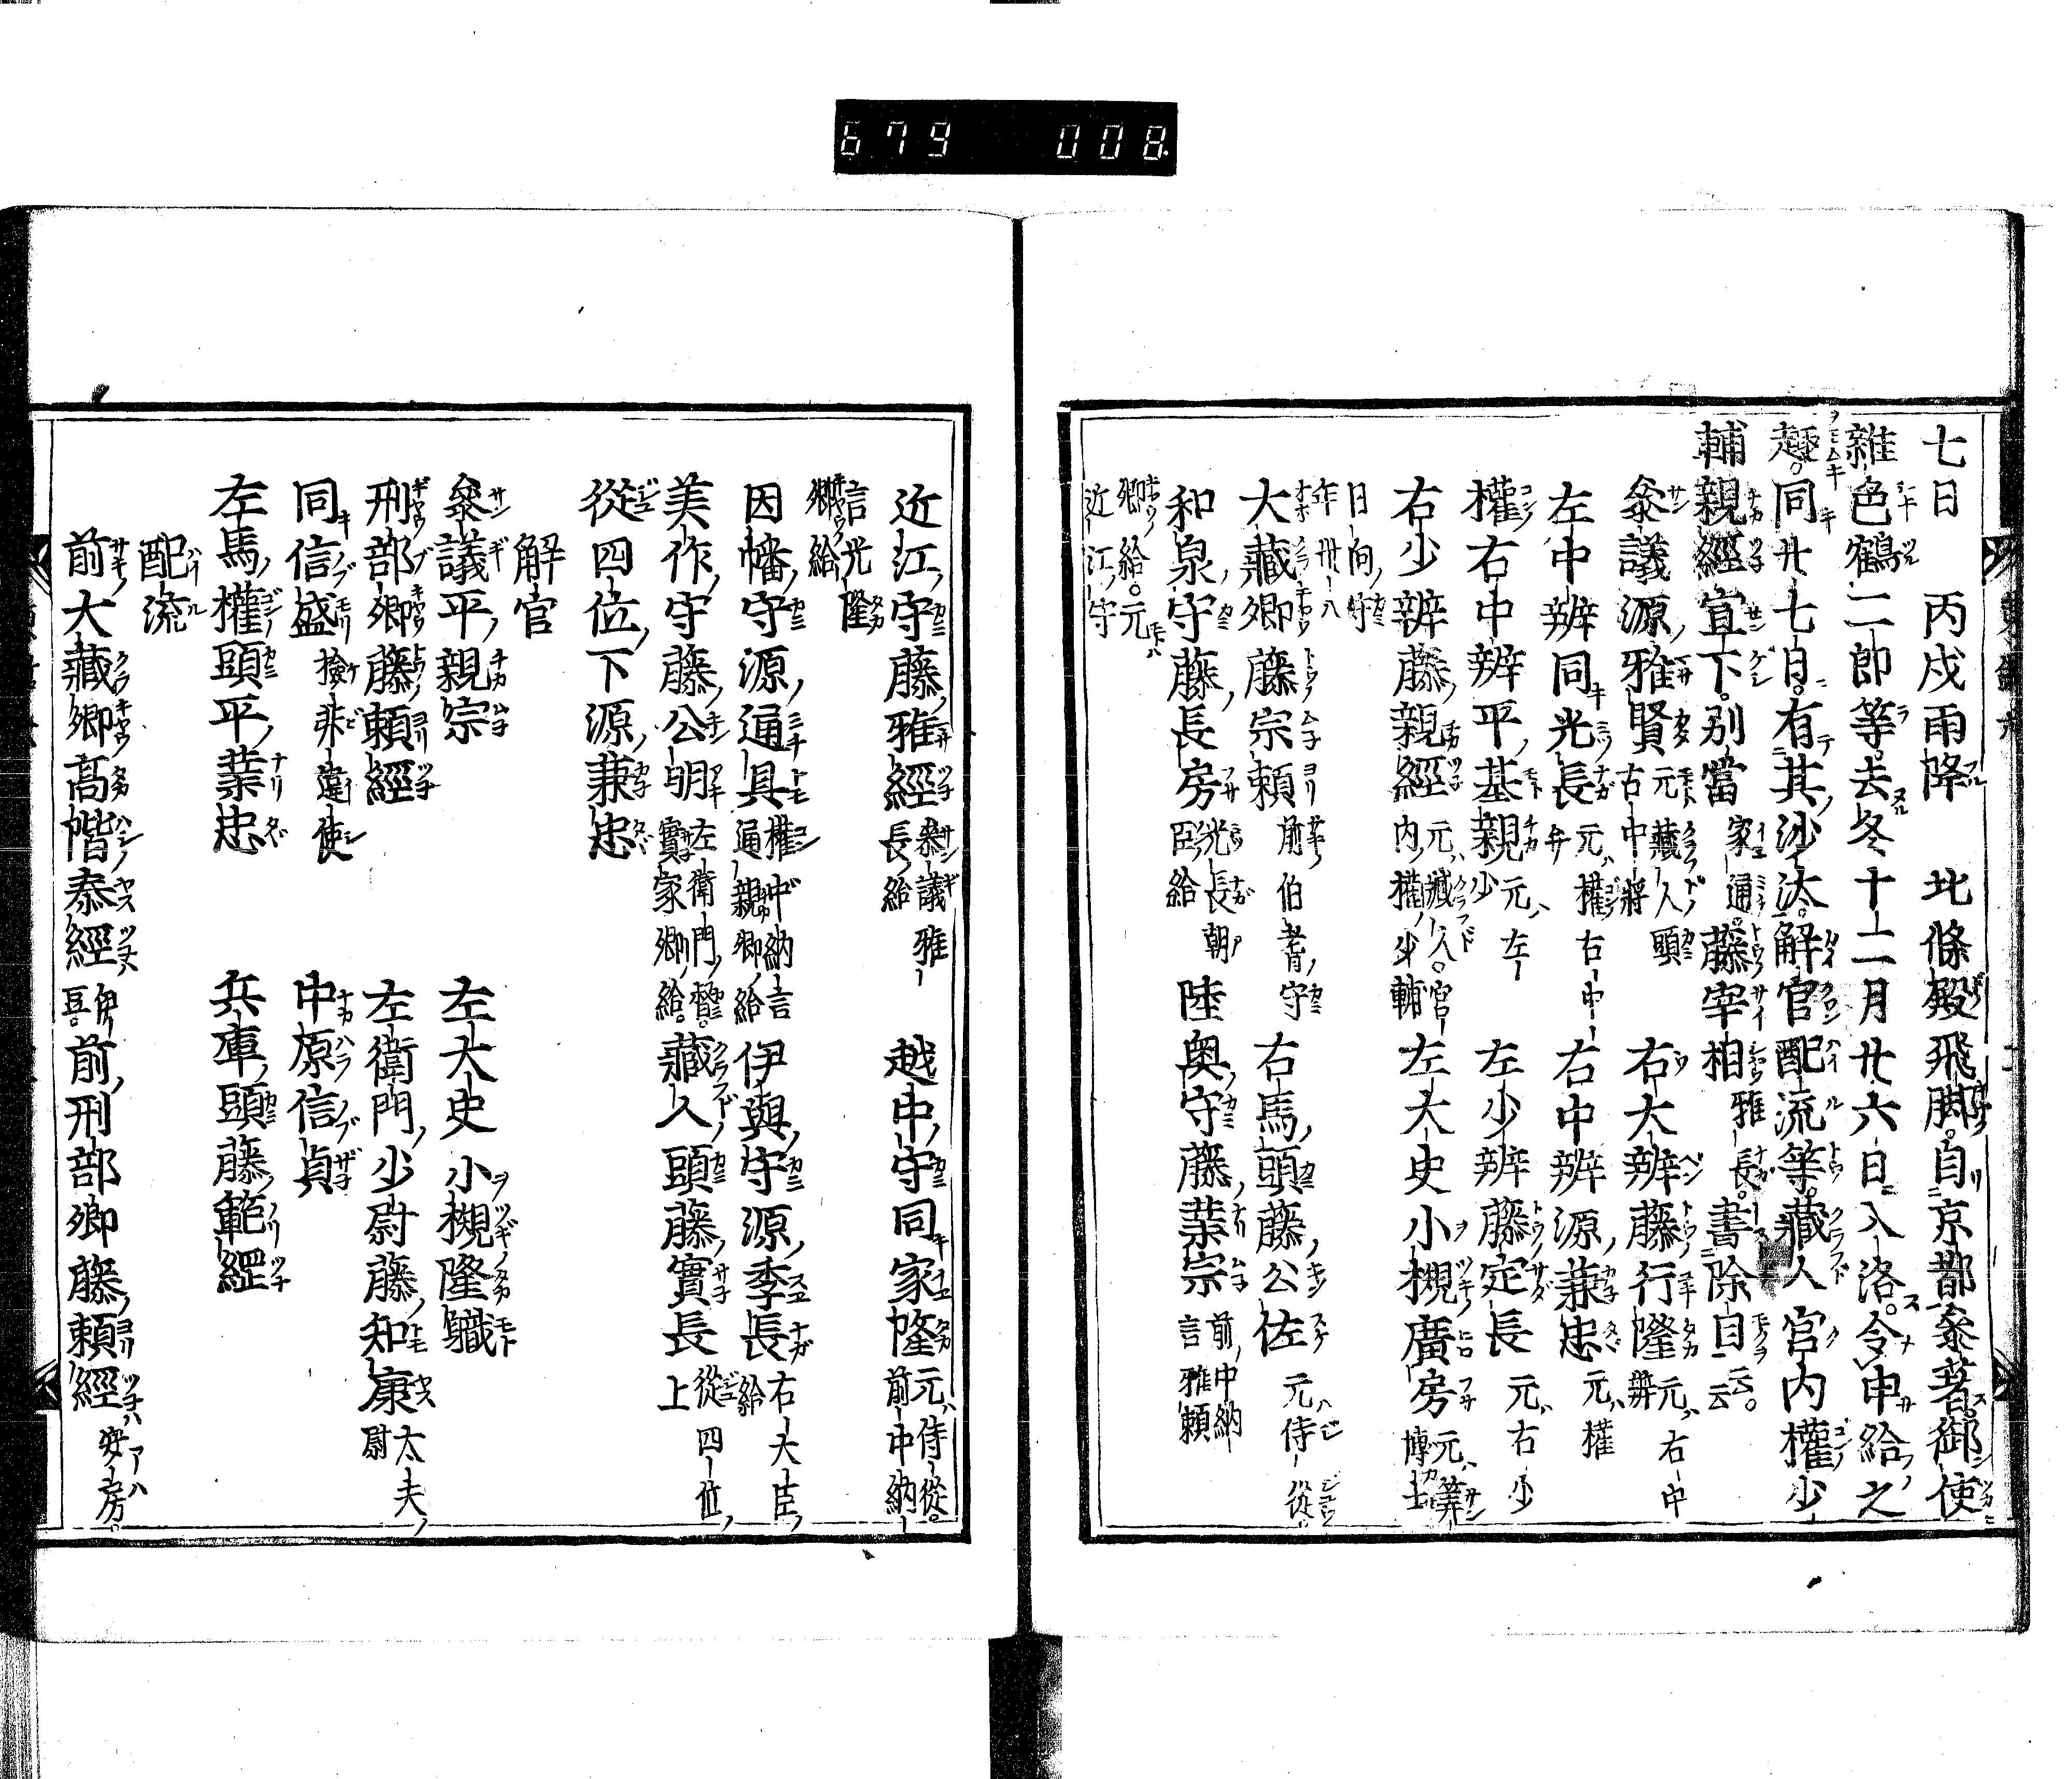 679 008
七日 丙戌雨降 北條殿飛脚自京都參著御使
雜色鶴二郎等去冬十二月廿六日入洛令申給之
趣同廿七日有其沙汰解官配流等藏人宮内權少
輔親經宣下別當家通藤宰相雅長書除目云云
參議源雅賢元藏人頭右中將 右大辨藤行隆元右中辨
左中辨同光長元權右中弁 右中辨源兼忠元權
權右中辨平基親元左少 左少辨藤定長元右少
右少辨親經元藏人宮内權少輔 左大史小槻廣房元筭博士
日向守年卅八
大藏卿藤宗頼前伯耆守 右馬頭藤公佐元侍從
和泉守藤長房光長朝臣給 陸奥守藤業宗前中納言雅頼
卿給元近江守
近江守藤雅經參議雅長給 越中守同家隆元侍從前中納
言光隆卿給
因幡守源通具權中納言通親卿給 伊與守源季長右大臣給
美作守藤公明左衛門督實家卿給 藏人頭藤實長從四位上
從四位下源兼忠
解官
參議平親宗 左大史小槻隆職
刑部卿藤頼經 左衛門少尉藤知康大夫尉
同信盛撿非違使 中原信貞
左馬權頭平業忠 兵庫頭藤範經
配流
前大藏卿高階泰經 前刑部卿藤頼經安房